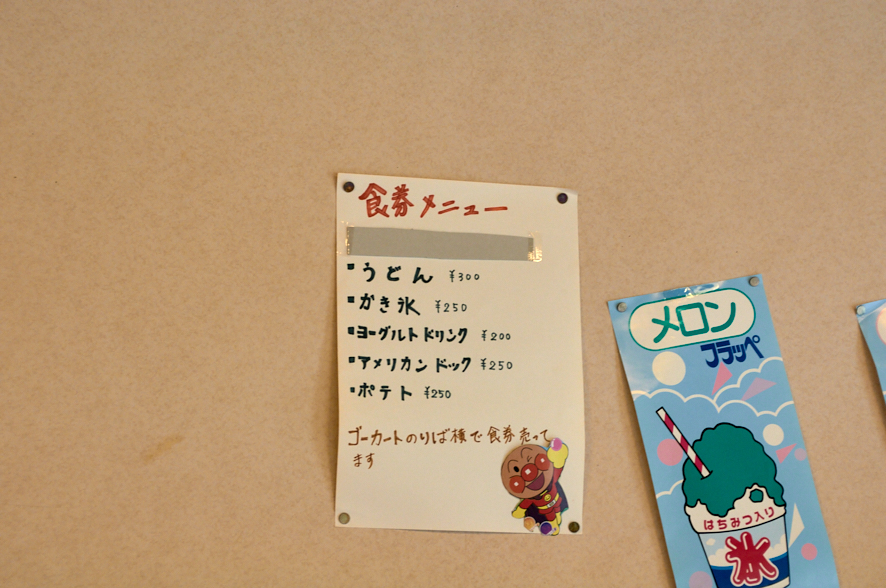 食券メニュー
▪うどん ¥300
▪かき氷 ¥250
▪ヨーグルトドリンク ¥200
▪アメリカンドック ¥250
▪ポテト ¥250
ゴーカートのりば横で食券売って
ます
メロン
フラッペ
はちみつ入り
氷